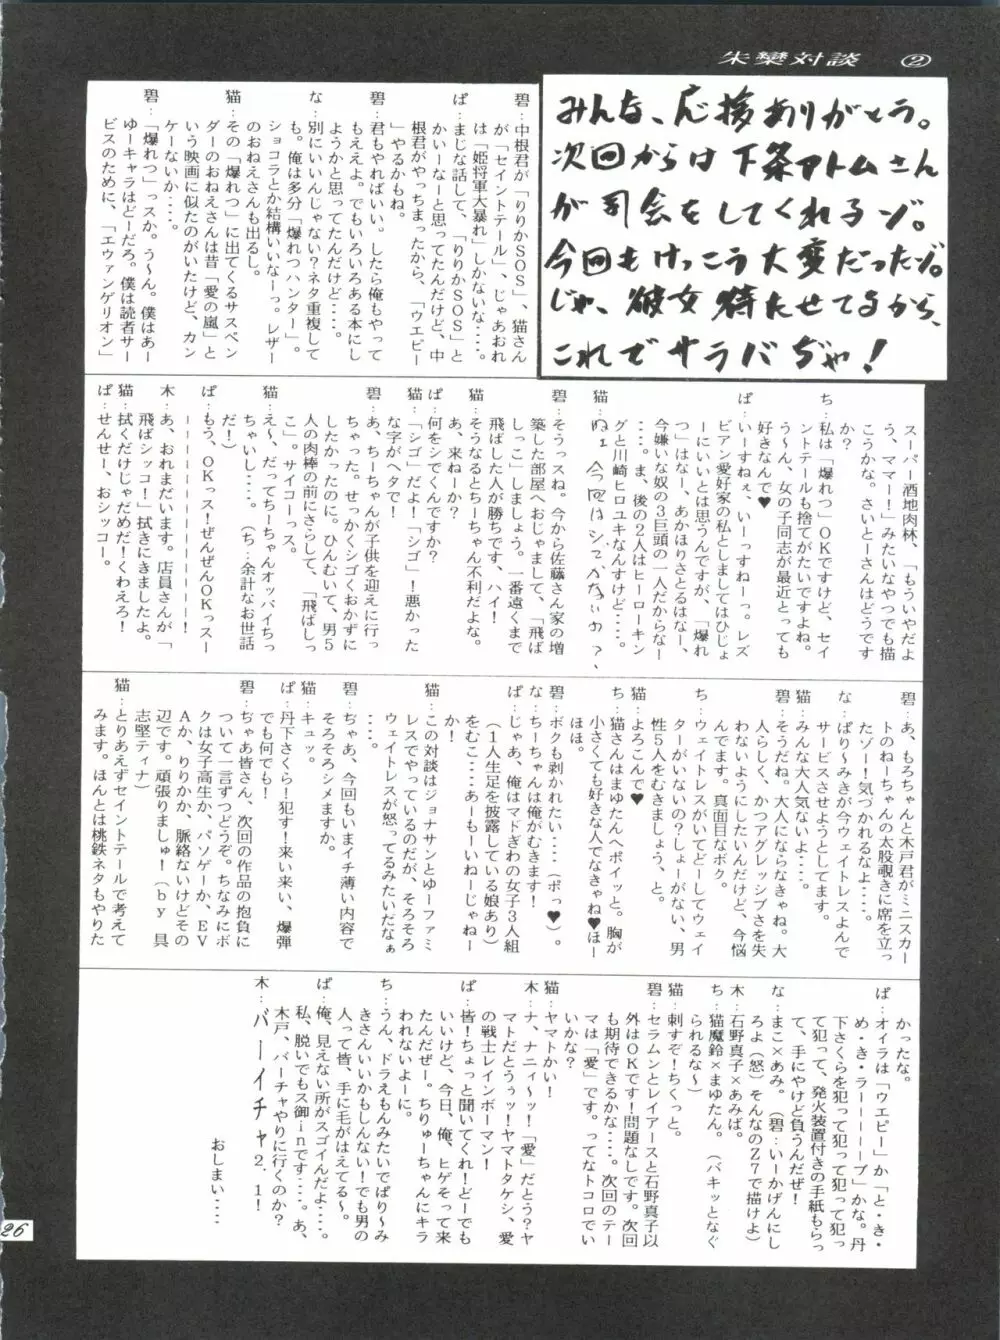 朱欒対談　②
みんな、応援ありがとう。
次回からは下条アトムさん
が司会をしてくれるゾ。
今回もけっこう大変だったゾ。
じゃ、彼女待たせてるから、
これでサラバぢゃ！
碧：中根君が「りりかSOS」、猫さん
が「セイントテール」、じゃあおれ
は「姫将軍大暴れ」しかないな‥‥。
ぱ：まじな話して、「りりかSOS」と
かいーなーと思ってたんだけど、中
根君がやっちまったから、「ウエピー
」やるかもね。
碧：君もやればいい。したら俺もやって
もええよ。でもいろいろある本にし
ようかと思ってたんだけど‥‥。
な：別にいいんじゃない？ネタ重複して
も。俺は多分「爆れつハンター」。
ショコラとか結構いいなーっ。レザー
のおねえさんも出るし。
猫：その「爆れつ」に出てくるサスペン
ダーのおねえさんは昔「愛の嵐」と
いう映画に似たのがいたけど、カン
ケーないか‥‥。
碧：「爆れつ」っスか。う～ん。僕はあー
ゆーキャラはどーだろ。僕は読者サー
ビスのために、「エヴァンゲリオン」
スーパー酒地肉林、「もういやだよ
う、ママー！」みたいなやつでも描
こうかな。さいとーさんはどうです
か？
ち：私は「爆れつ」OKですけど、セイ
ントテールも捨てがたいですよね。
う～ん、女の子同志が最近とっても
好きなんで♥
ぱ：いーすねぇ、いーっすねーっ。レズ
ビアン愛好家の私としましてはひじょ
ーにいいとは思うんですが、「爆れ
つ」はなー、あかほりさとるはなー、
今嫌いな奴の3巨頭の一人だからなー
。ま、後の2人はヒーローキン
グと川崎ヒロユキなんすけど‥‥。
碧：そうっスね。今から佐藤さん家の増
築した部屋へおじゃまして、「飛ば
しっこ」しましょう。一番遠くまで
飛ばした人が勝ちです、ハイ！
猫：そうなるとちーちゃん不利だよな。
あ、来ねーか？
ぱ：何をシでくんですか？
猫：「シゴ」だよ！「シゴ」！悪かった
な字がヘタで！
碧：あ、ちーちゃんが子供を迎えに行っ
ちゃった。せっかくシゴくおかずに
したかったのに。ひんむいて、男5
人の肉棒の前にさらして、「飛ばしっ
こ」。サイコーっス。
猫：え～、だってちーちゃんオッパイちっ
ちゃいし‥‥。（ち：余計なお世話
だ！）
ぱ：もう、OKっス！ぜんぜんOKっスー
ーーーーーーーーーー！
木：あ、おれまだいます。店員さんが「
飛ばシッコ！」拭きにきましたよ。
猫：拭くだけじゃだめだ！くわえろ！
ぱ：せんせー、おシッコー。
碧：あ、もろちゃんと木戸君がミニスカー
トのねーちゃんの太股覗きに席を立っ
たゾー！気づかれるなよ‥‥。
な：ぱり～みきが今ウェイトレスよんで
サービスさせようとしてます。
猫：みんな大人気ないよ‥‥。
碧：そうだね。大人にならなきゃね。大
人らしく、かつアグレッシブさを失
わないようにしたいんだけど、今悩
んでます。真面目なボク。
ち：ウェイトレスがいてどーしてウェイ
ターがいないの？しょーがない、男
性5人をむきましょう、と。
猫：よろこんで♥
ち：猫さんはまゆたんへポイッと。胸が
小さくても好きな人でなきゃね♥ほー
ほほ。
碧：ボクも剥かれたい‥‥（ポっ♥）。
な：ちーちゃんは俺がむきます！
ぱ：じゃあ、俺はマドぎわの女子3人組
（1人生足を披露している娘あり）
をむこ‥‥あーもーいねーじゃねー
か！
猫：この対談はジョナサンとゆーファミ
レスでやっているのだが、そろそろ
ウェイトレスが怒ってるみたいだなぁ
‥‥
碧：ぢゃあ、今回もいまイチ薄い内容で
そろそろシメますか。
猫：キュッ。
ぱ：丹下さくら！犯す！来い来い、爆弾
でも何でも！
碧：ぢゃあ皆さん、次回の作品の抱負に
ついて一言ずつどうぞ。ちなみにボ
クは女子高生か、パソゲーか、EV
Aか、りりかか、脈絡ないけどその
辺です。頑張りましゅ！（by　具
志堅ティナ）
猫：とりあえずセイントテールで考えて
みます。ほんとは桃鉄ネタもやりた
かったな。
ぱ：オィラは「ウエピー」か「と・き・
め・き・ラーーーーブ」かな。丹
下さくらを犯って犯って犯って犯っ
て犯って、発火装置付きの手紙もらっ
て、手にやけど負うんだぜ！
な：まこ×あみ。（碧：いーかげんにし
ろよ（怒）そんなのZ7で描けよ）
木：石野真子×あみば。
ち：猫魔鈴×まゆたん。（バキッとなぐ
られるな～）
猫：刺すぞ！ちくっと。
碧：セラムンとレイアースと石野真子以
外はOKです！問題なしです。次回
も期待できるかな‥‥。次回のテー
マは「愛」です。ってなトコロでい
いかな？
猫：ヤマトかい！
木：ナ、ナニィ～ッ！「愛」だとう？ヤ
マトだとうぅッ！ヤマトタケシ、愛
の戦士レインボーマン！
ぱ：皆！ちょっと聞いてくれ！どーでも
いいけど、今日、俺、ヒゲそって来
たんだぜー。ちりゅーちゃんにキラ
われないよーに。
ち：うん、ドラえもんみたいでぱり～み
きさんいいかもしんない！でも男の
人って皆、手に毛がはえてる～。
ぱ：俺、見えない所がスゴイんだよ‥‥。
私、脱いでもス御inです‥‥。あ、
木戸、バーチャやりに行くのか？
木：バーイチャ2．1！
おしまい‥‥
26